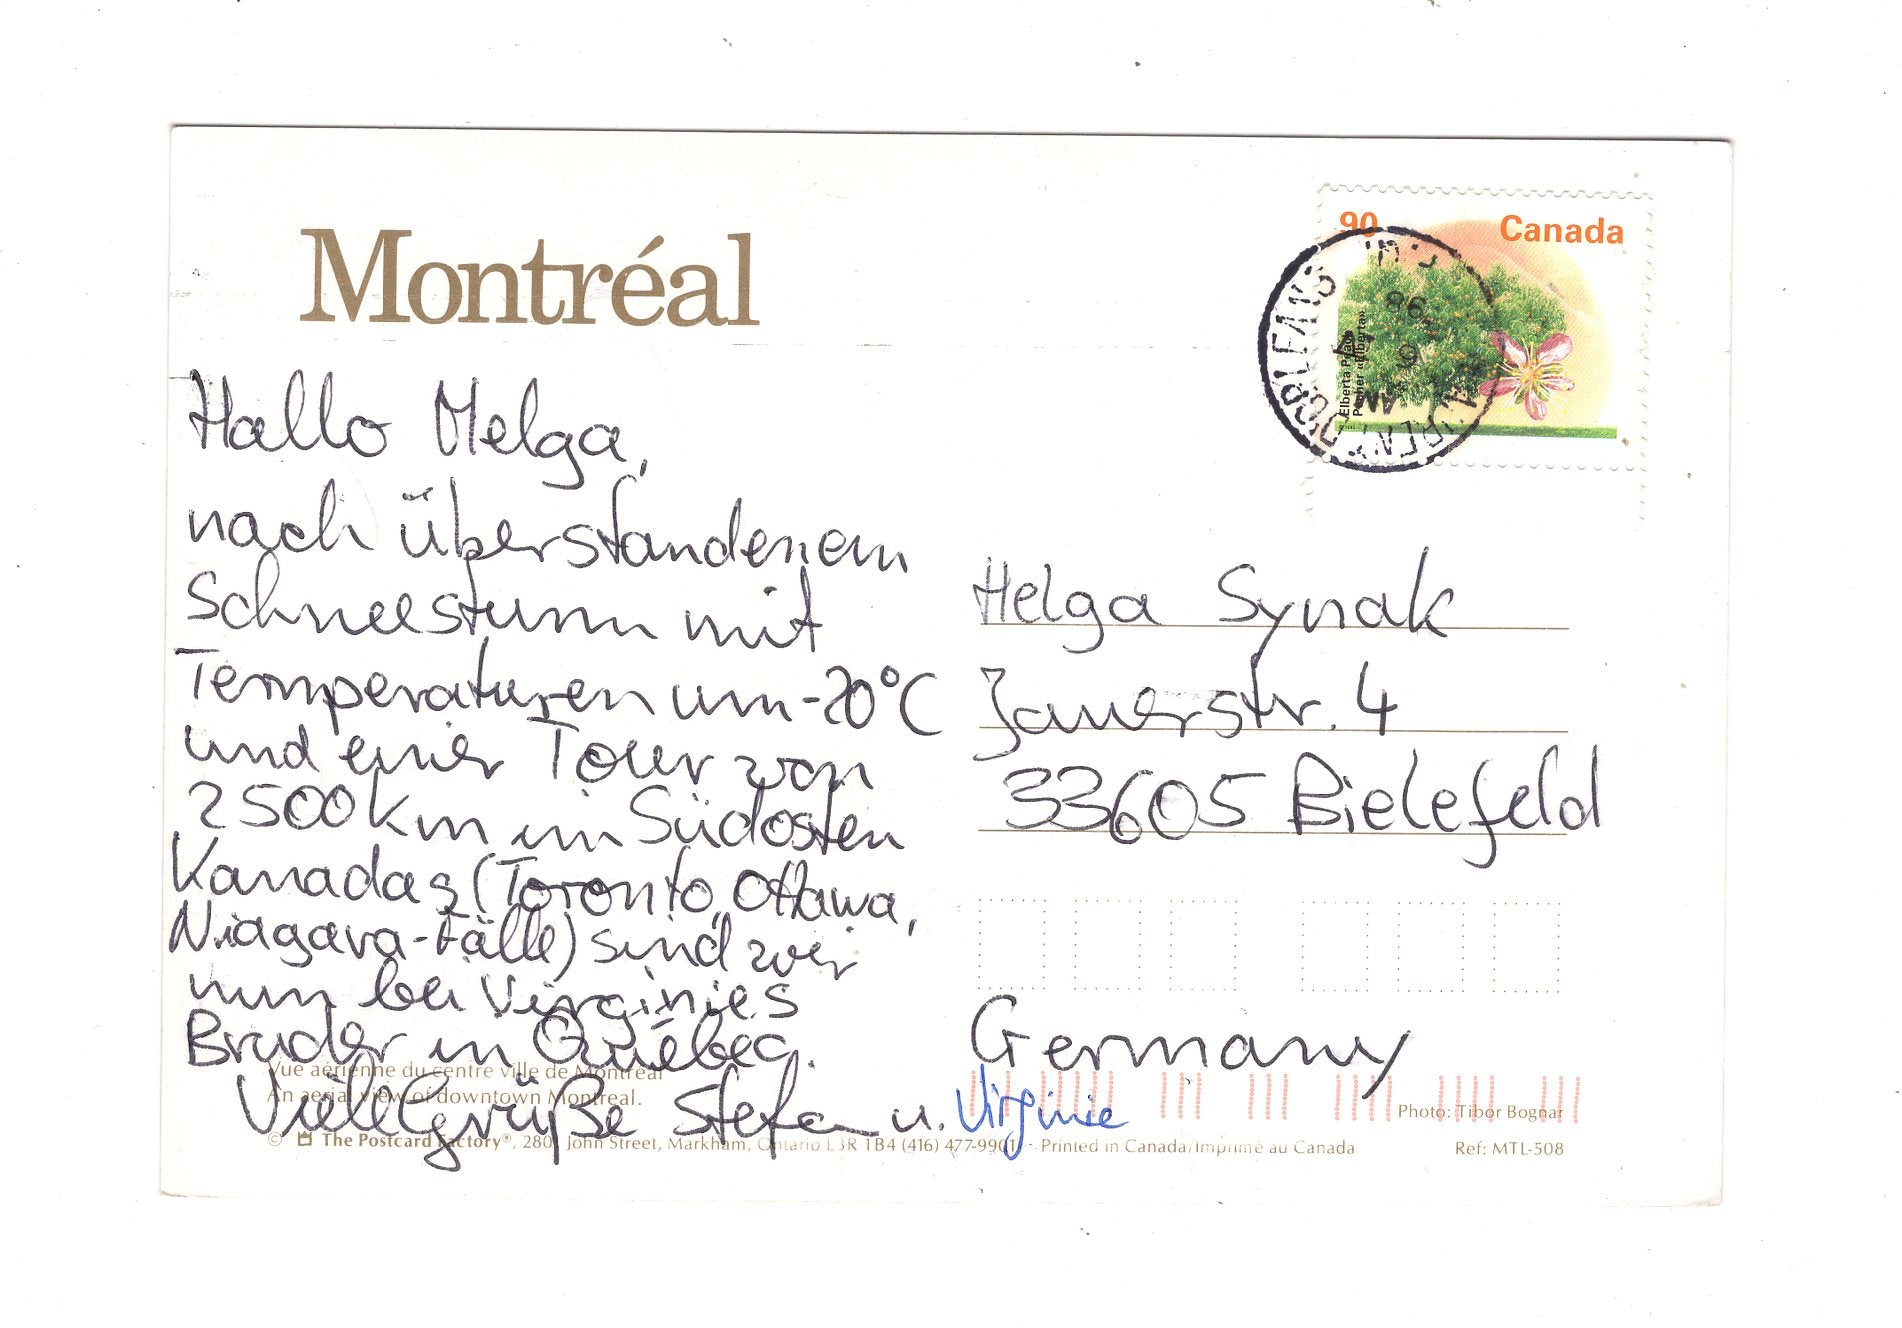 Montréal
90 Canada
Elberta Peach
Pêcher «Elberta»
D'ORLEANS
98
AM
Hallo Helga,
nach überstandenem
Schneesturm mit
Temperaturen um -20°C
und einer Tour von
2500 km im Südosten
Kanadas (Toronto, Ottawa,
Niagara-Fälle) sind wir
nun bei Virginies
Bruder in Québec.
Viele Grüße Stefan u. Virginie
Helga Synak
Jauerstr. 4
33605 Bielefeld
Germany
Vue aérienne du centre ville de Montréal
An aerial view of downtown Montreal.
Photo: Tibor Bognar
© The Postcard Factory®, 2801 John Street, Markham, Ontario L3R 1B4 (416) 477-9901 - Printed in Canada/Imprimé au Canada
Ref: MTL-508